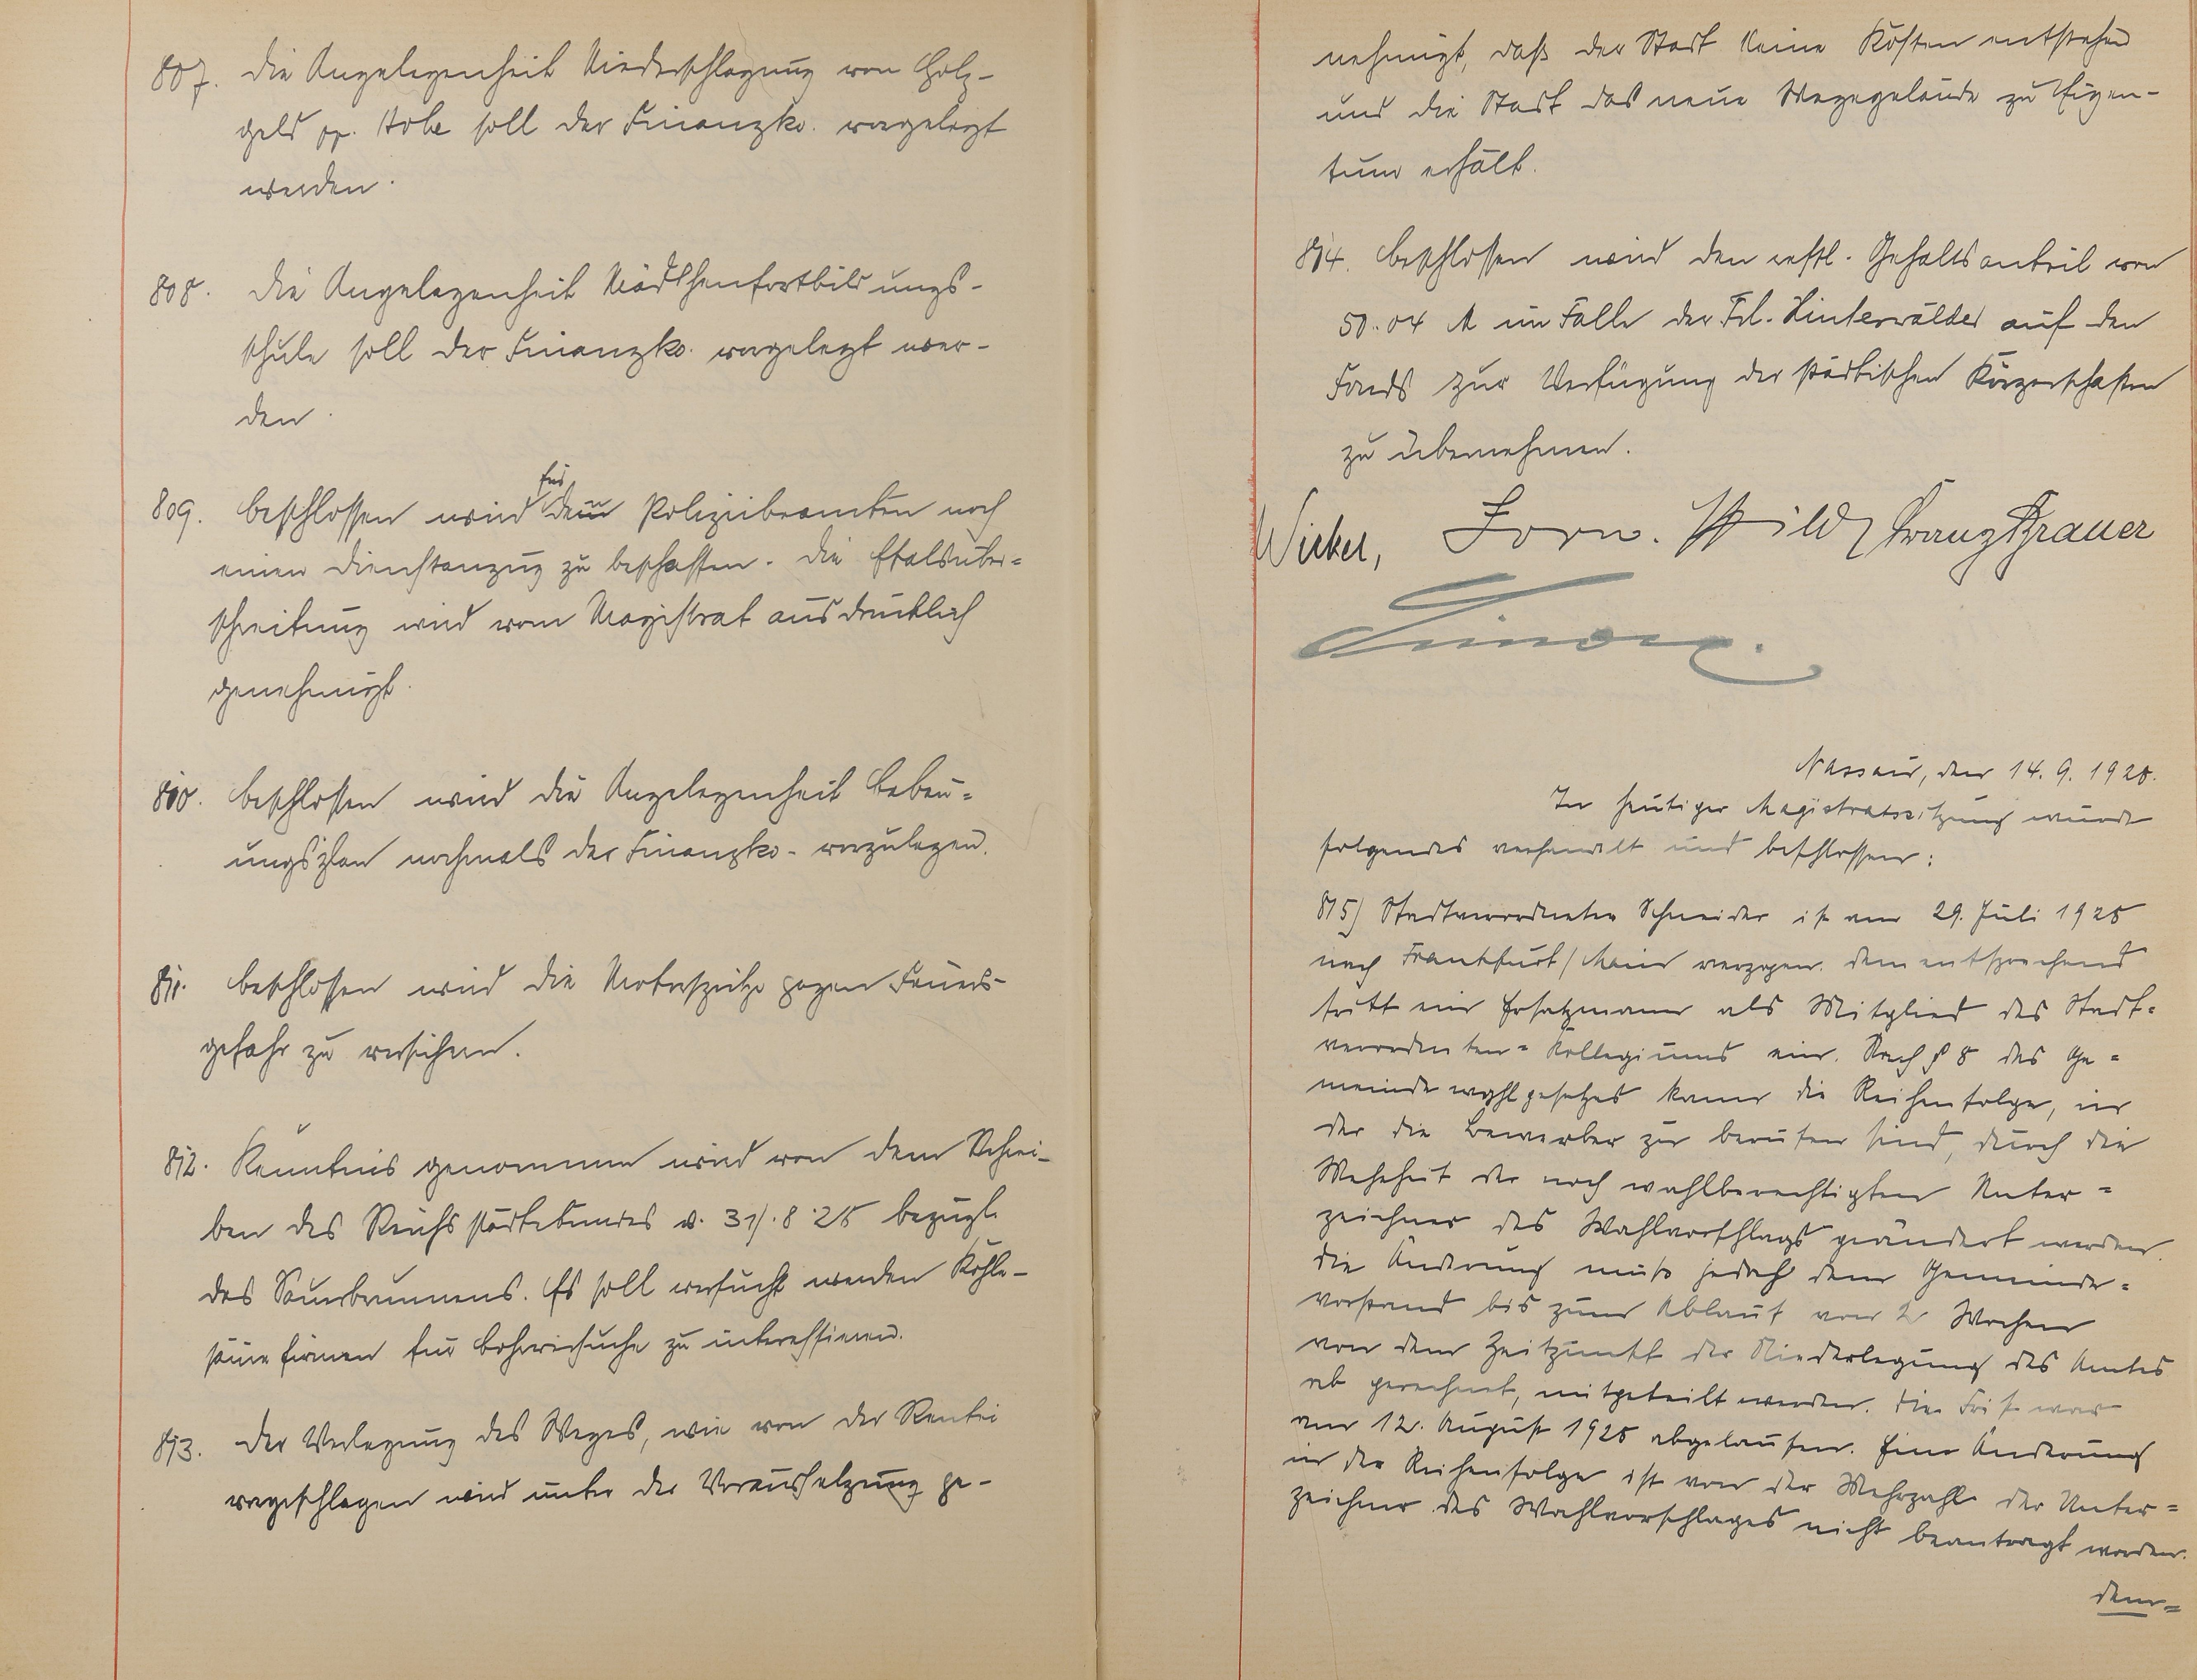 807. Die Angelegenheit Niederschlagung von Holz-
geld pp. soll der Finanzko. vorgelegt
werden.
808. Die Angelegenheit Mädchenfortbildungs-
schule soll der Finanzko. vorgelegt wer-
den.
809. Beschlossen wird für den Polizeibeamten noch
einen Dienstanzug zu beschaffen. Die Etatsüber=
schreitung wird vom Magistrat ausdrücklich
genehmigt.
810. Beschlossen wird die Angelegenheit Bebau=
ungsplan nochmals der Finanzko. vorzulegen.
811. Beschlossen wird die Motorspritze gegen Feuers-
gefahr zu versichern.
812. Kenntnis genommen wird von dem Schrei-
ben des Reichsstädtebundes v. 31.8.25 bezügl.
des Sauerbrunnens. Es soll versucht werden Kohle-
säurefirmen für Bohrversuche zu interessieren.
813. Der Verlegung des Weges, wie von der Rentei
vorgeschlagen wird unter der Voraussetzung ge-
nehmigt, daß der Stadt keine Kosten entstehen
und die Stadt das neue Wegegelände zu Eigen-
tum erhält.
814. Beschlossen wird den restl. Gehaltsanteil von
50.04 M im Falle der Frl. Hinterwälder auf den
Fonds zur Verfügung der städtischen Körperschaften
zu übernehmen.
Wicker, Zorn. Wild Franz Brauer
Nassau, den 14. 9. 1925.
In heutiger Magistratssitzung wurde
folgendes verhandelt und beschlossen:
815) Stadtverordneter Schneider ist am 29. Juli 1925
nach Frankfurt/Main verzogen. Dementsprechend
tritt ein Ersatzmann als Mitglied des Stadt=
verordneten=Kollegiums ein. Nach § 8 des Ge=
meindewahlgesetzes kann die Reihenfolge, in
der die Bewerber zu berufen sind, durch die
Mehrheit der noch wahlberechtigten Unter=
zeichner des Wahlvorschlags geändert werden.
Die Änderung muß jedoch dem Gemeinde=
vorstand bis zum Ablauf von 2 Wochen
von dem Zeitpunkt der Niederlegung des Amtes
ab gerechnet, mitgeteilt werden. Die Frist war
am 12. August 1925 abgelaufen. Eine Änderung
in der Reihenfolge ist von der Mehrzahl der Unter=
zeichner des Wahlvorschlages nicht beantragt worden.
Dem=